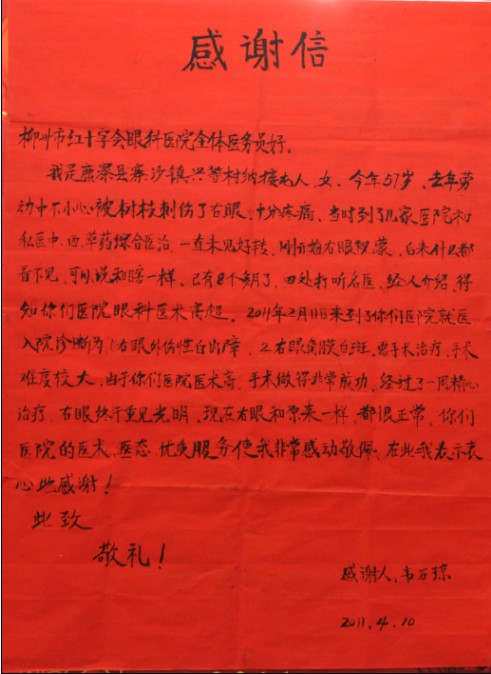 感谢信
柳州市红十字会眼科医院全体医务员好。
我是鹿寨县寨沙镇兴等村纳接屯人，女、今年57岁，去年劳
动中不小心被树枝刺伤了右眼，十分疼痛、当时到了几家医院和
私医中、西、草药综合医治，一直未见好转，刚开始右眼视蒙，后来什么都
看不见，可以说和瞎一样。已有8个多月了，四处打听名医，经人介绍，得
知你们医院眼科医术高超，2011年2月11日来到了你们医院就医
入院诊断为1.右眼外伤性白内障，2.右眼角膜白斑，需手术治疗，手术
难度较大，由于你们医院医术高、手术做得非常成功，经过了一周精心
治疗，右眼终于重见光明，现在右眼和原来一样，都很正常，你们
医院的医术、医态、优质服务使我非常感动敬佩、在此我表示衷
心地感谢！
此致
敬礼！
感谢人：韦石琼
2011.4.10